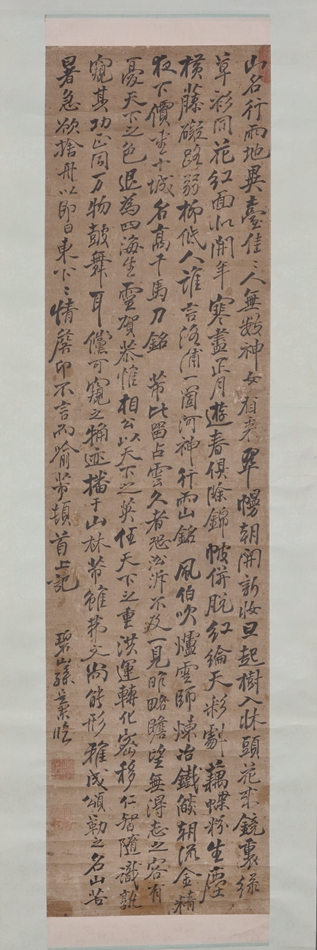 山名行雨地異臺佳〻人無數神女有光翠幔朝開新妝旦起樹入牀頭花來鏡裏綠
草衫同花紅面似開年寒盡正月遊春俱除錦帔併脫紅綸天劇藕蝶粉生塵
橫藤礙路弱柳低人誰言洛浦一箇河神行雨山銘 風伯吹爐雲師煉冶鐵燄朝流金精
夜下價重十城名高千馬刀銘 芾比占雲久者恐訴不及一見昨略瞻望無得志之容有
憂天下之色退為四海生靈賀恭惟相公以天下之英任天下之重洪運轉化密移仁智隨識孰
窺其功正同万物鼓舞耳儻可窺之迹播于山林芾雖文尚能形雅成頌勒之名山苦
暑急欲捨舟以即日東下〻情不言而喻芾頓首上記
碧山孫